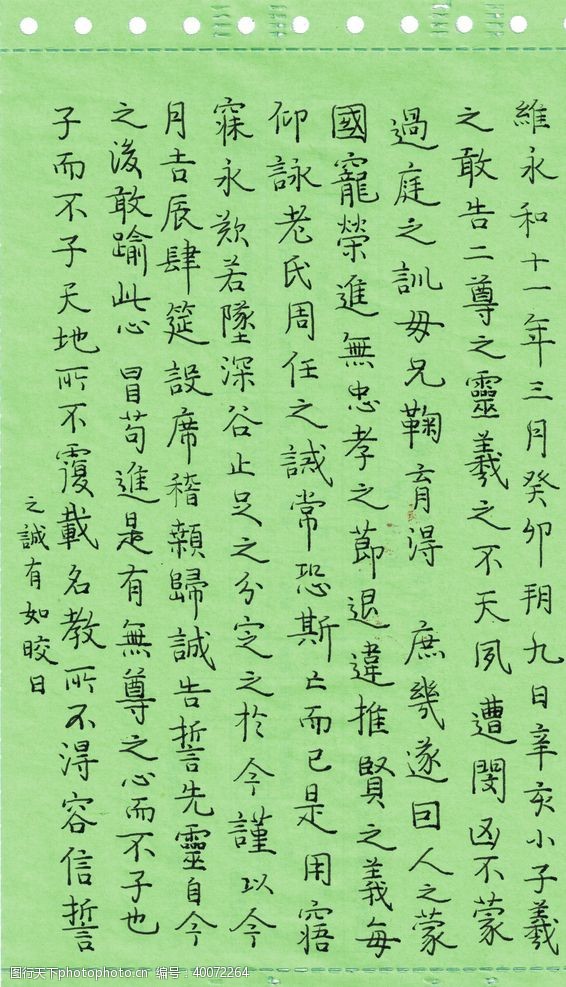 維永和十一年三月癸卯朔九日辛亥小子羲
之敢告二尊之靈羲之不天夙遭閔凶不蒙
過庭之訓毋兄鞠育得 庶幾遂囙人之蒙
國寵榮進無忠孝之節退違推賢之義每
仰詠老氏周任之誡常恐斯亡而已是用寤
寐永歎若墜深谷止足之分定之於今謹以今
月吉辰肆筵設席稽顙歸誠告誓先靈自今
之後敢踰此心冒苟進是有無尊之心而不子也
子而不子天地所不覆載名教所不得容信誓
之誠有如晈日
图行天下photophoto.cn 编号：40072264